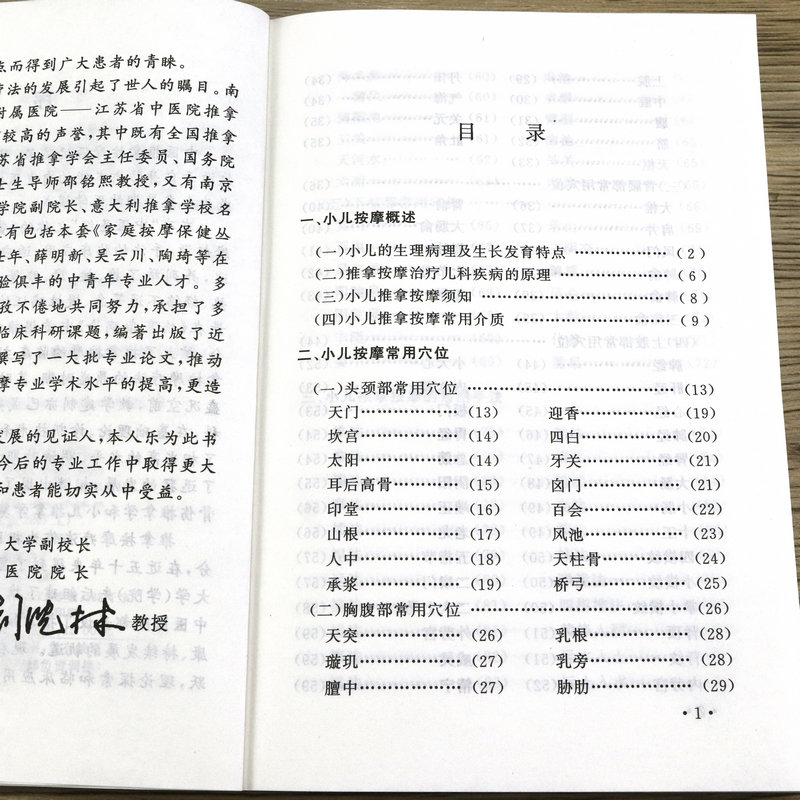 点而得到广大患者的青睐。
疗法的发展引起了世人的瞩目。南
附属医院——江苏省中医院推拿
较高的声誉,其中既有全国推拿
苏省推拿学会主任委员、国务院
士生导师邵铭熙教授,又有南京
学院副院长、意大利推拿学校名
有包括本套《家庭按摩保健丛
年、薛明新、吴云川、陶琦等在
验俱丰的中青年专业人才。多
孜不倦地共同努力,承担了多
临床科研课题,编著出版了近
撰写了一大批专业论文,推动
摩专业学术水平的提高,更造
发展的见证人,本人乐为此书
今后的专业工作中取得更大
和患者能切实从中受益。
大学副校长
医院院长
教授
目 录
一、小儿按摩概述
(一)小儿的生理病理及生长发育特点………………(2)
(二)推拿按摩治疗儿科疾病的原理………………(6)
(三)小儿推拿按摩须知………………(8)
(四)小儿推拿按摩常用介质………………(9)
二、小儿按摩常用穴位
(一)头颈部常用穴位………………(13)
天门…………(13) 迎香…………(19)
坎宫…………(14) 四白…………(20)
太阳…………(14) 牙关…………(21)
耳后高骨………(15) 囟门…………(21)
印堂…………(16) 百会…………(22)
山根…………(17) 风池…………(23)
人中…………(18) 天柱骨…………(24)
承浆…………(19) 桥弓…………(25)
(二)胸腹部常用穴位………………(26)
天突…………(26) 乳根…………(28)
璇玑…………(27) 乳旁…………(28)
膻中…………(27) 胁肋…………(29)
·1·